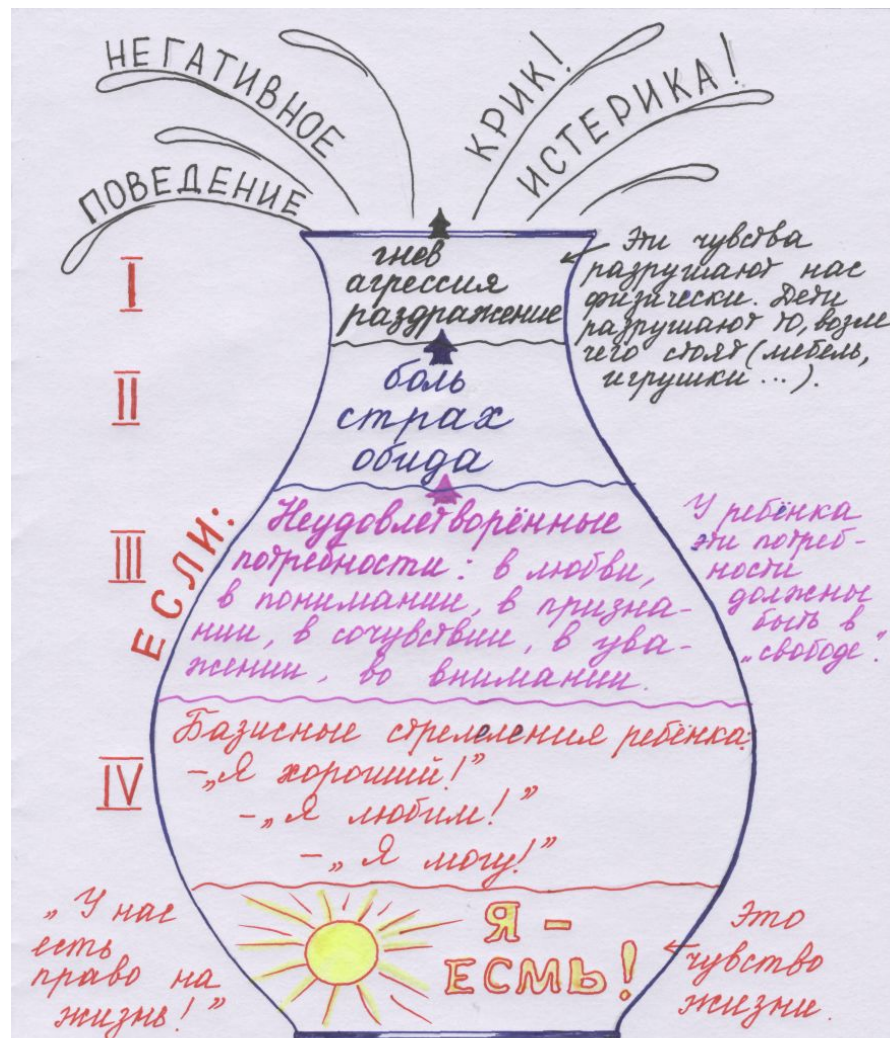 НЕГАТИВНОЕ
ПОВЕДЕНИЕ
КРИК!
ИСТЕРИКА!
I
гнев
агрессия
раздражение
Эти чувства
разрушают нас
физически. Дети
разрушают то, возле
чего стоят (мебель,
игрушки...).
II
боль
страх
обида
ЕСЛИ:
III
Неудовлетворённые
потребности: в любви,
в понимании, в призна-
нии, в сочувствии, в ува-
жении, во внимании.
У ребёнка
эти потреб-
ности
должны
быть в
„свободе".
IV
Базисные стремления ребёнка:
-„Я хороший!"
-„Я любим!"
-„Я могу!"
„У нас
есть
право на
жизнь!"
Я -
ЕСМЬ!
Это
чувство
жизни.